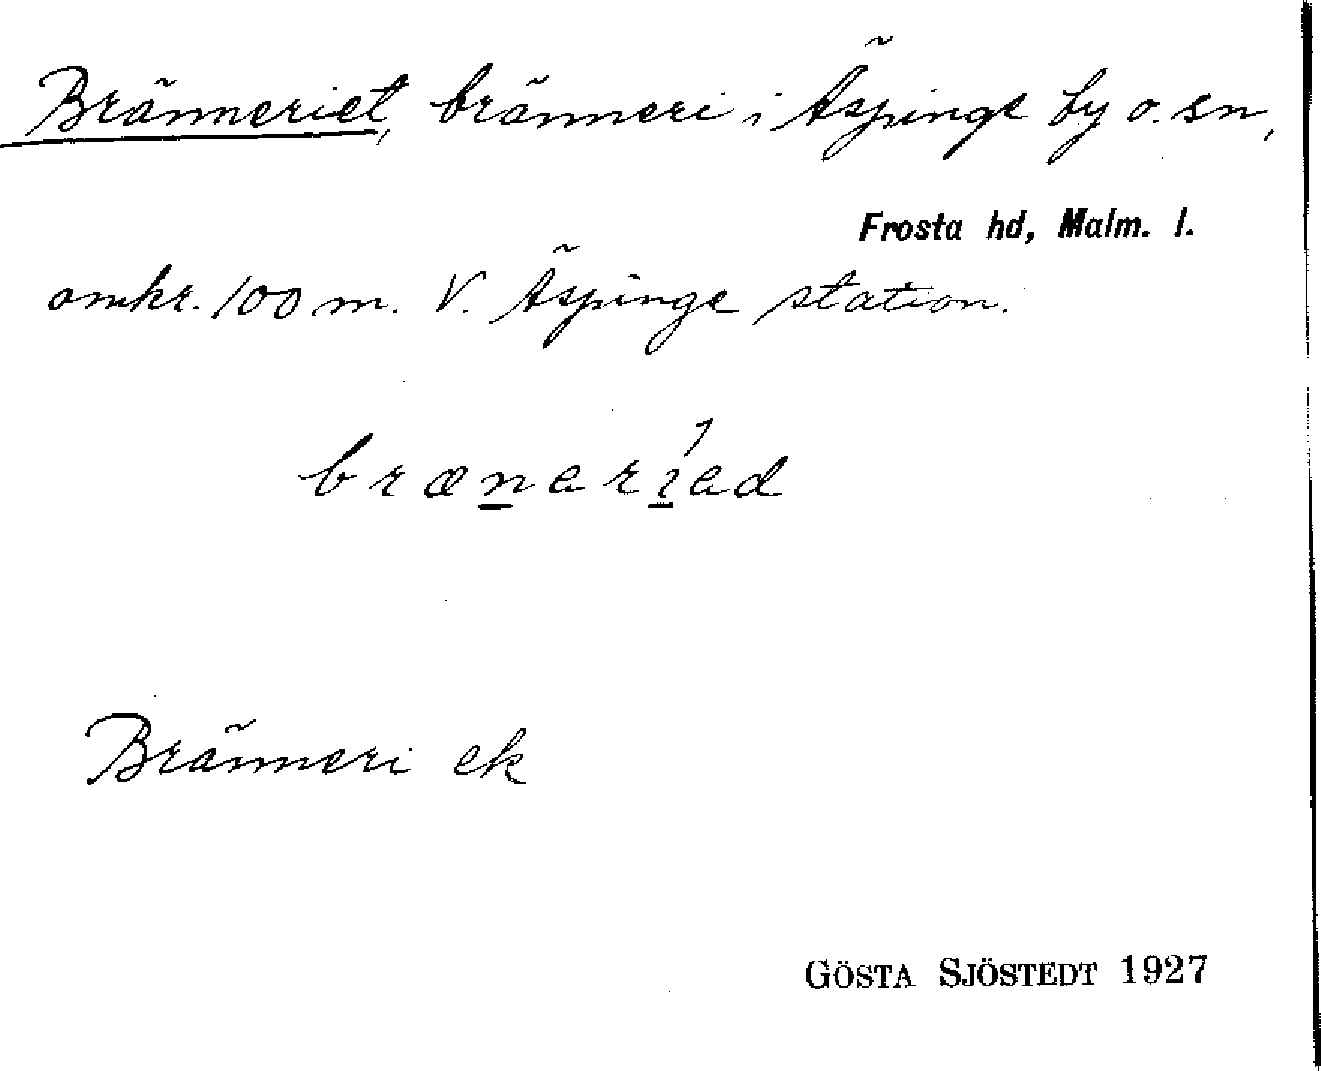 Bränneriet, bränneri i Äspinge by o. sn,
Frosta hd, Malm. l.
omkr. 100 m. V. Äspinge station.
brænariad
Bränneri ek
GÖSTA SJÖSTEDT 1927